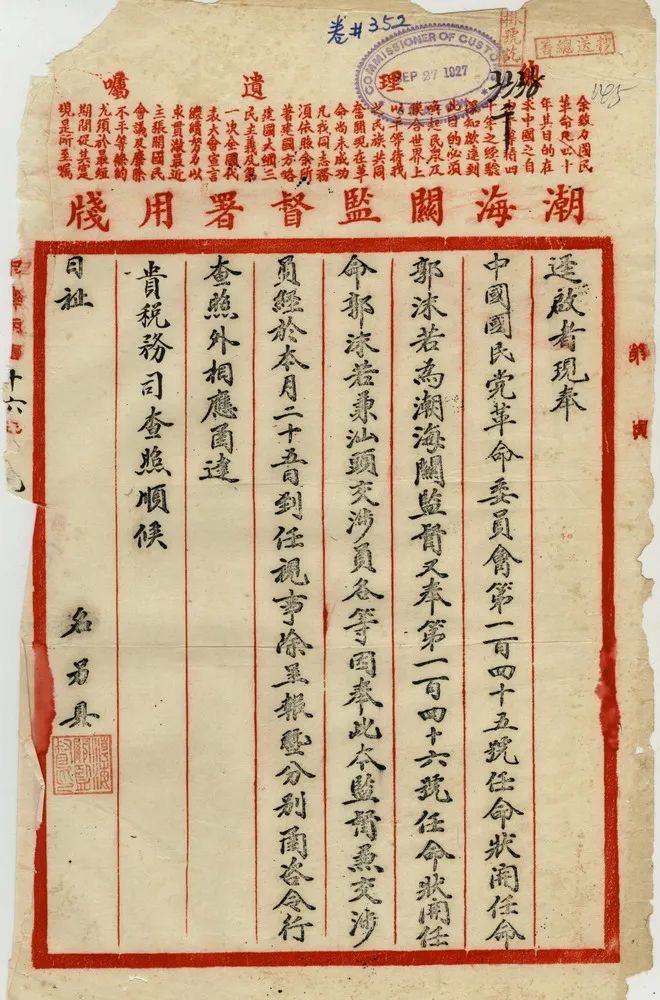 卷#352
掛號訖
抄送總署
COMMISSIONER OF CUSTO
SEP 27 1927
理遺囑
余致力國民
革命凡四十
年其目的在
求中國之自
積四
十年之經驗
深知欲達到
此目的必須
喚起民眾及
聯合世界上
以平等待我
之民族共同
奮鬭現在革
命尚未成功
凡我同志務
須依照余所
著建國方略
建國大綱三
民主義及第
一次全國代
表大會宣言
繼續努力以
求貫澈最近
主張開國民
會議及廢除
不平等條約
尤須於最短
期間促其實
現是所至囑
潮海關監督署用牋
逕啟者現奉
中國國民党革命委員會第一百四十五號任命狀開任命
郭沫若為潮海關監督又奉第一百四十六號任命狀開任
命郭沫若兼汕頭交涉員各等因奉此本監督兼交涉
員經於本月二十五日到任視事除呈報暨分別函咨令行
查照外相應函達
貴稅務司查照順候
日祉
名另具
第頁
十六